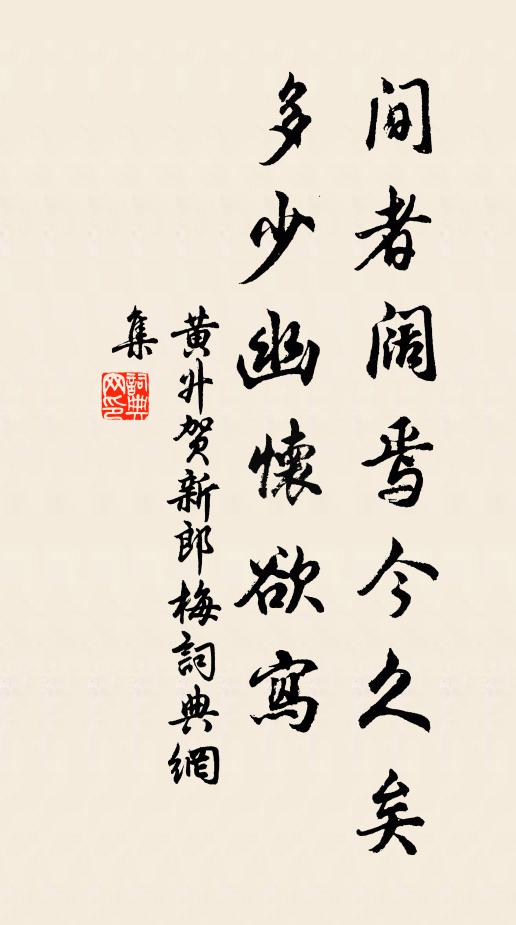 间者阔焉今久矣
多少幽懷欲寫
黄升贺新郎梅詞典網
集
詞典
网印